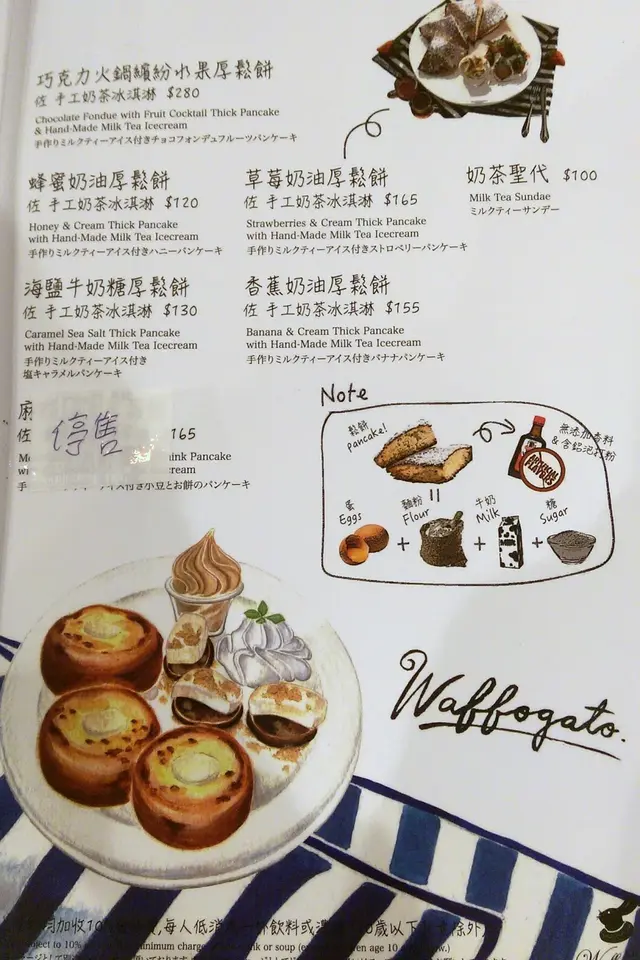 巧克力火鍋繽紛水果厚鬆餅
佐 手工奶茶冰淇淋 $280
Chocolate Fondue with Fruit Cocktail Thick Pancake
& Hand-Made Milk Tea Icecream
手作りミルクティーアイス付きチョコフォンデュフルーツパンケーキ
蜂蜜奶油厚鬆餅
佐 手工奶茶冰淇淋 $120
Honey & Cream Thick Pancake
with Hand-Made Milk Tea Icecream
手作りミルクティーアイス付きハニーパンケーキ
草莓奶油厚鬆餅
佐 手工奶茶冰淇淋 $165
Strawberries & Cream Thick Pancake
with Hand-Made Milk Tea Icecream
手作りミルクティーアイス付きストロベリーパンケーキ
奶茶聖代 $100
Milk Tea Sundae
ミルクティーサンデー
海鹽牛奶糖厚鬆餅
佐 手工奶茶冰淇淋 $130
Caramel Sea Salt Thick Pancake
with Hand-Made Milk Tea Icecream
手作りミルクティーアイス付き
塩キャラメルパンケーキ
香蕉奶油厚鬆餅
佐 手工奶茶冰淇淋 $155
Banana & Cream Thick Pancake
with Hand-Made Milk Tea Icecream
手作りミルクティーアイス付きバナナパンケーキ
麻
佐 165
停售
手 アイス付き小豆とお餅のパンケーキ
Note
鬆餅
pancake!
無添加香料
& 含鋁泡打粉
蛋 麵粉 牛奶 糖
Eggs Flour Milk Sugar
+ + +
Waffogato.
加收10% 每人低消 一杯飲料或 歲以下 除外
ject to 10% minimum charge or soup age 10